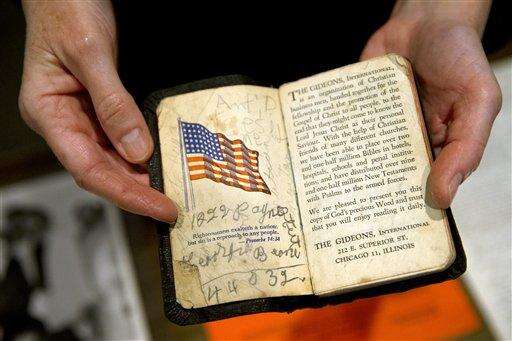 1222 Payne
Righteousness exalteth a nation,
but sin is a reproach to any people.
— Proverbs 14:34
44832
THE GIDEONS, INTERNATIONAL,
is an organization of Christian
business men, banded together for
fellowship and the promotion of the
Gospel of Christ to all people, to the
end that they might come to know the
Lord Jesus Christ as their personal
Saviour. With the help of Christian
friends of many different churches,
we have been able to place over two
and one-half million Bibles in hotels,
hospitals, schools and penal institu-
tions, and have distributed over nine
and one-half million New Testaments
with Psalms to the armed forces.
We are pleased to present you this
copy of God's precious Word and trust
that you will enjoy reading it daily.
THE GIDEONS, INTERNATIONAL
212 E. SUPERIOR ST.,
CHICAGO 11, ILLINOIS